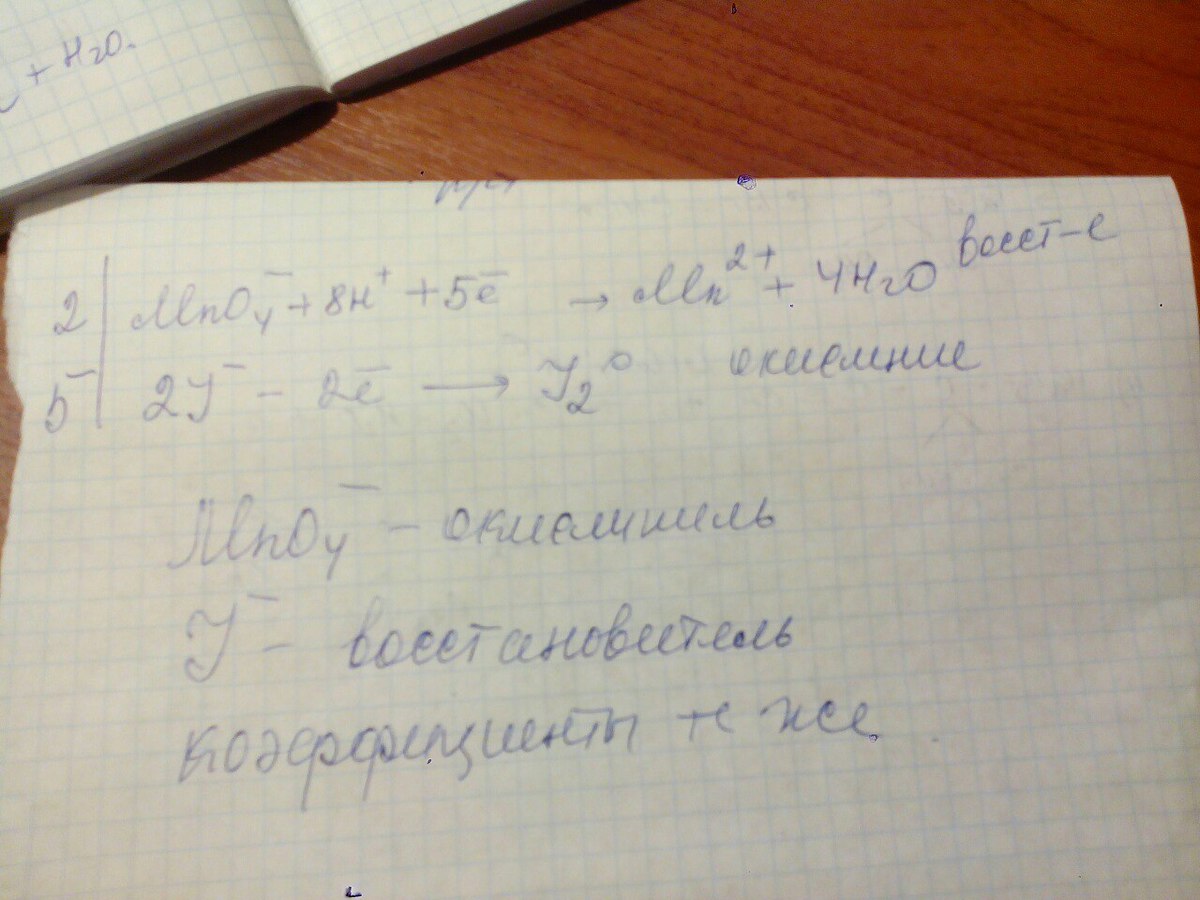 + H2O.
2 | MnO4⁻ + 8H⁺ + 5ē → Mn²⁺ + 4H2O восст-е
5 | 2J⁻ - 2ē → J2⁰ окисление
MnO4⁻ - окислитель
J⁻ - восстановитель
коэффициенты те же.